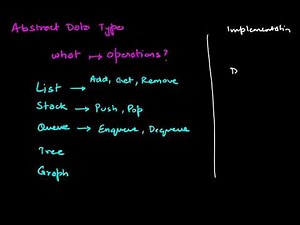 Abstract Data Types
Implementation
what → operations?
List → Add, Get, Remove
D
Stock → Push, Pop
Queue → Enqueue, Dequeue
Tree
Graph